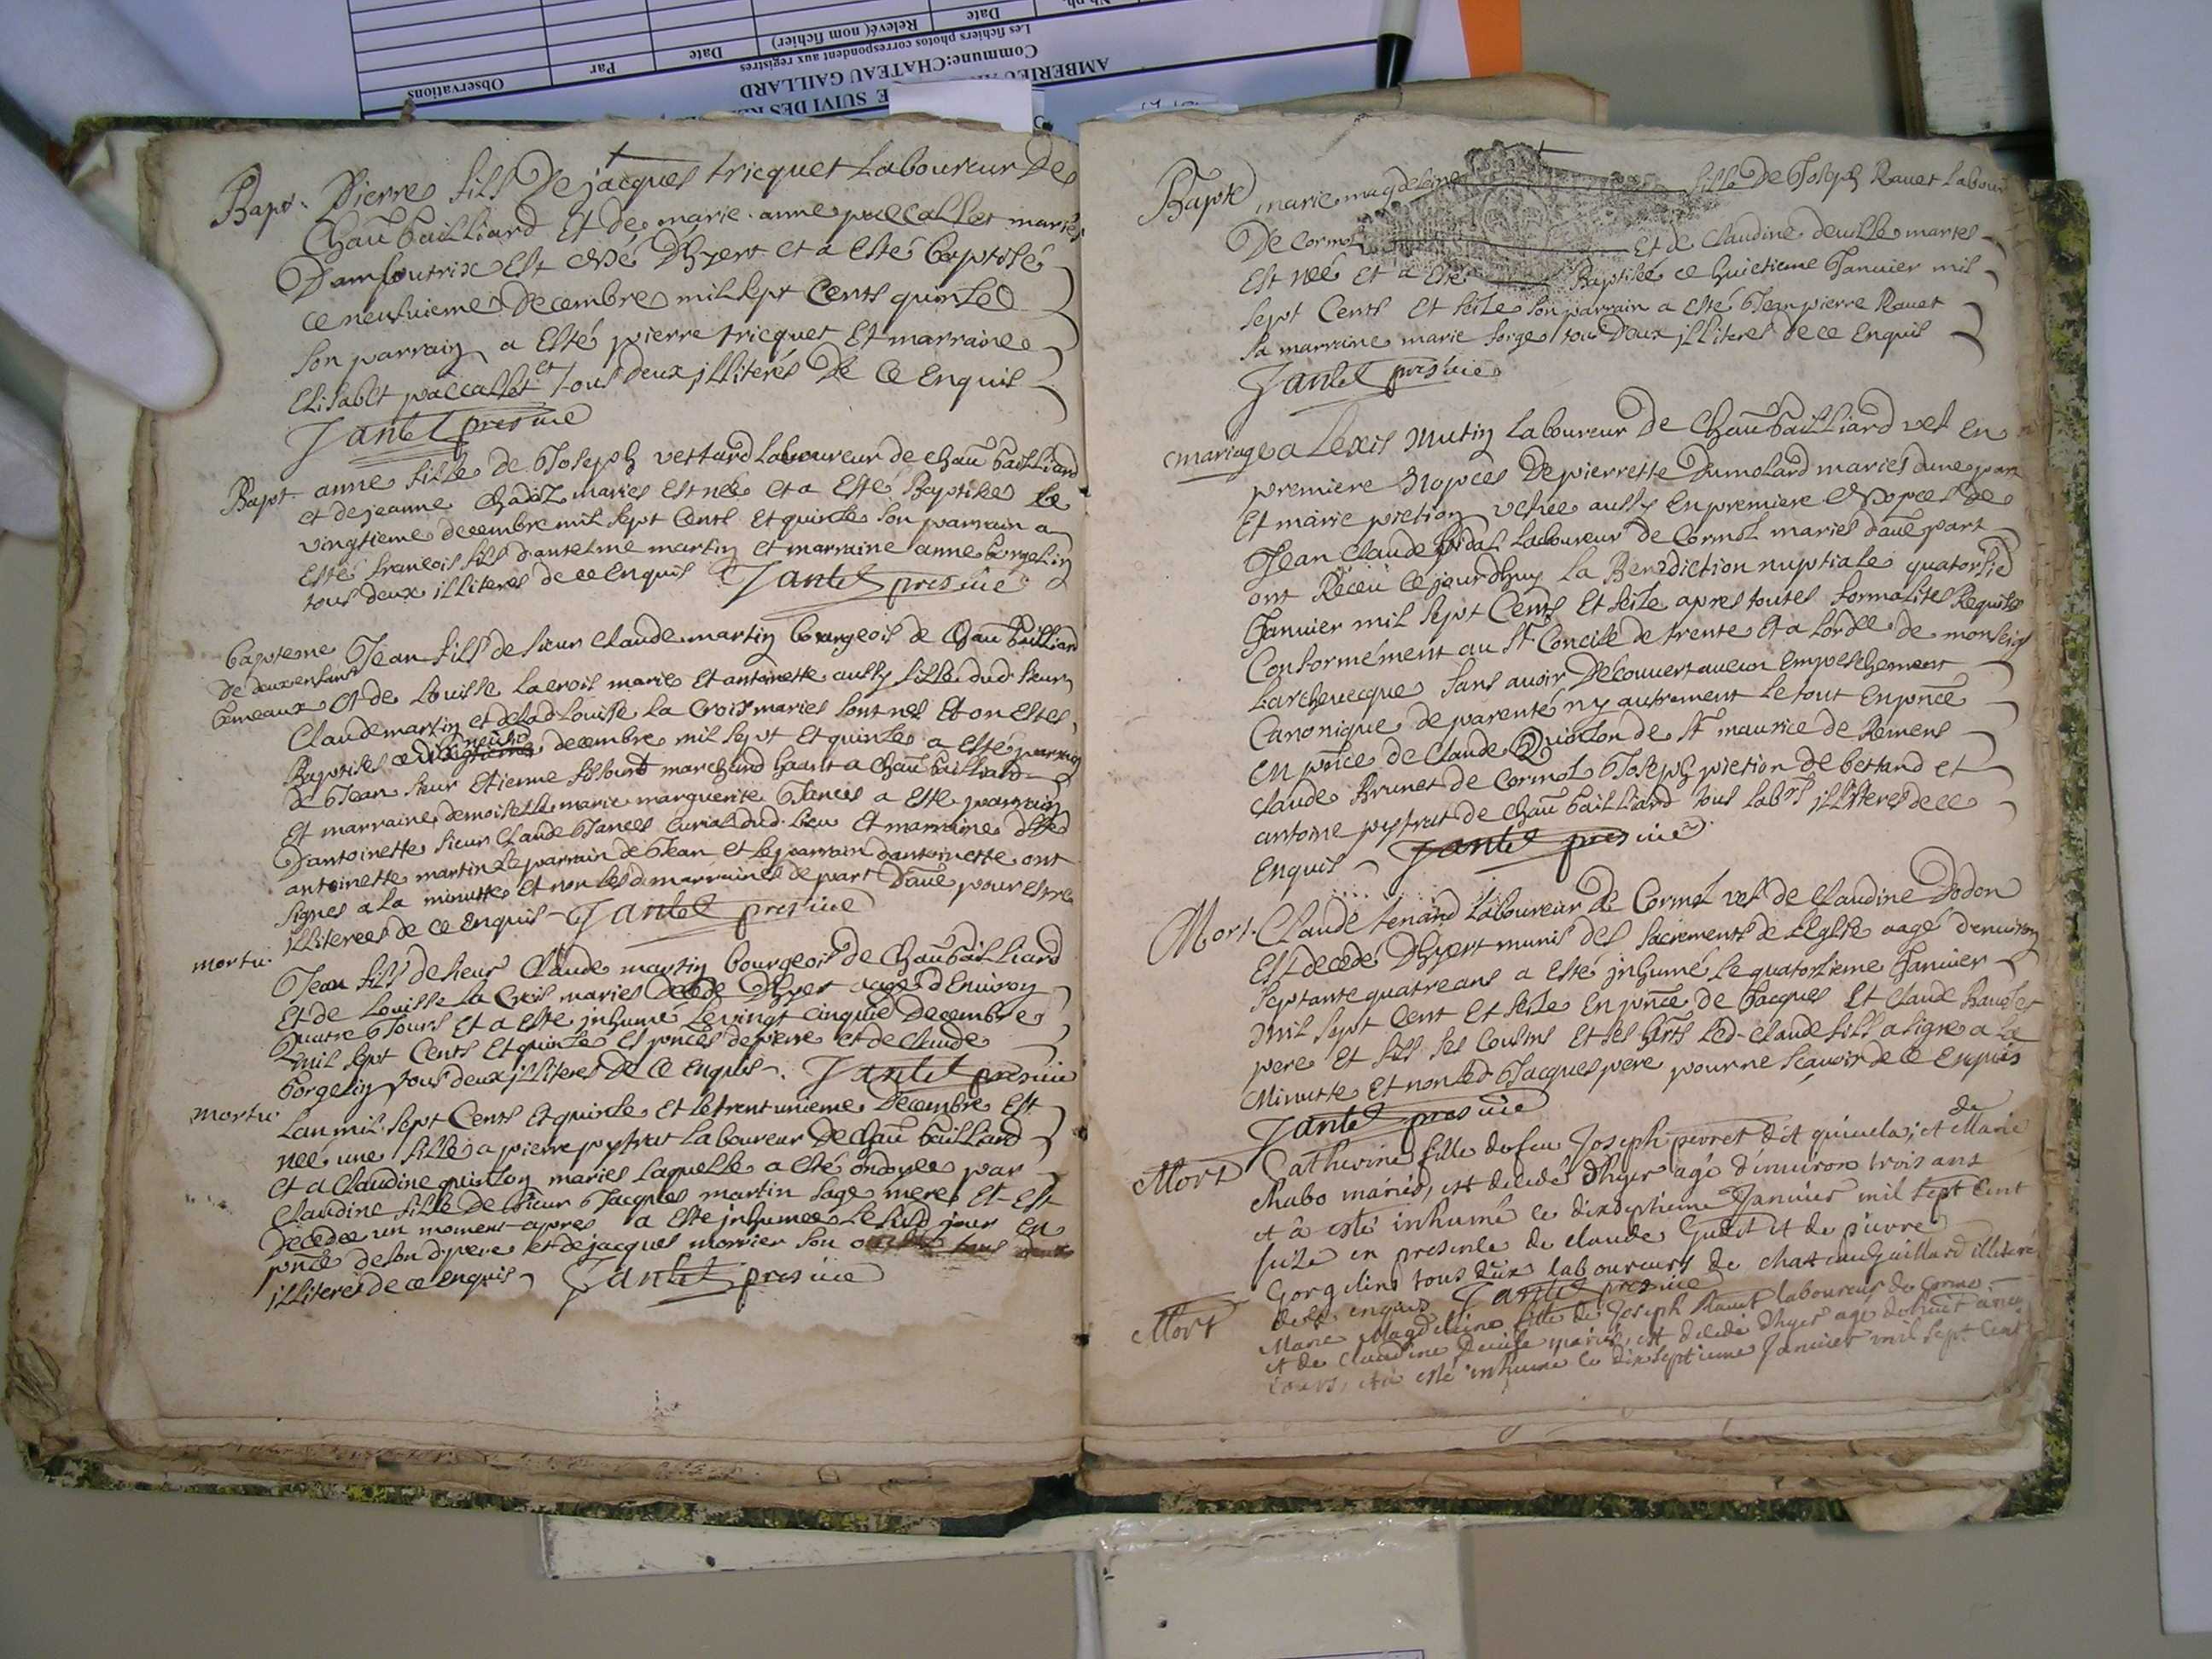 Observations
Par
Date
Relevé( nom fichier)
Date
Les fichiers photos correspondent aux registres
Commune:CHATEAU GAILLARD
E SUIVI DES RE
Bapt. Pierre fils De jacques tricquet Laboureur De
Chaũ Gailliard Et de marie anne paccallet mariés
Damboutrix Est Né Dhyert et a Esté baptisé
ce neufuieme Decembre mil sept Cents quinse
son parrain a Esté pierre tricquet Et marraine
Elisabet paccallet et tous deux illiterés De Ce Enquis
Jantet pres uic
Bapt. anne fille de Joseph vettard Laboureur de chaũ gailliard
et de jeanne Chadoz mariés Est née et a Esté Baptisée Le
vingtieme decembre mil sept Cents Et quinse son parrain a
Esté francois fils dantelme martin Et marraine anne Gorgelin
tous deux illiteres de ce Enquis Jantet pres uic
bapteme Jean fils de sieur claude martin bourgeois de Chaũ Gailliard
de deux enfans
Gemeaux Et de Louisse Lacrois mariés Et antoinette aussy fille dud. sieur
Claude martin et de Lad Louisse La Croix mariés sont nés Et on Estes
Baptisés ce dixneufe decembre mil sept Et quinse a Esté parrain
de Jean sieur Etienne marchand ha a Chaũ Gailliard
Et marraine demoiselle marie marguerite Jances a Esté parrain
Dantoinette sieur Claude Jances Curial dud. Lieu Et marraine
antoinette martin Le parrain de Jean et Le parrain dantoinette ont
signes a La minutte Et non Les d marraines de part Daũe pour Estre
illiterees de ce Enquis Jantet pres uic
mortu. Jean fils de sieur Claude martin bourgeois de Chaũ Gailliard
Et de Louisse La Crois mariés decede Dhyer aagé d'Enuiron
quatre Jours Et a Esté jnhume Le vingt cinquie Decembre
mil sept Cents Et quinse Es pnces de pierre et de Claude
Gorgelin tous deux illiteres De Ce Enquis. Jantet pres uic
mortu. Lan mil sept Cents Et quinse Et Le trent unieme Decembre Est
née une fille a pierre pytrat Laboureur De Chaũ Gailliard
et a Claudine quinson mariés Laquelle a Esté ondoyée par
Claudine fille De sieur Jacques martin sage mere Et Est
Decedee un moment apres a Esté jnhumee Le jour En
pnce de son d. pere et de jacques morrier son tous deux
illiteres de ce Enquis Jantet pres uic
Bapte marie magdeleine fille De Joseph Rauet Labour
De Cormoz Et de Claudine deuille mariés
Est née Et a Esté Baptisée ce huictieme Januier mil
sept Cents Et seise son parrain a Esté Jean pierre Rauet
sa marraine marie forge tous Deux illiteres de ce Enquis
Jantet pres uic
mariage alexis Mutin Laboureur De Chaũ Gailliard vef En
premiere Nopces De pierrette Dumolard mariés dune part
Et marie piction vefue aussy En premiere Nopces De
Jean Claude Laboureur de Cormoz mariés daũe part
ont Receu Ce jourdhuy La Benediction nuptiale quatorsie
Januier mil sept Cents Et seise apres toutes formalites Requises
Conformément au St Concile de trente Et a Lordce de monseigr
Larcheuecque sans auoir Decouuert aucun Empeschement
Canonique de parenté ny autrement Le tout En pnce
En pnce de Claude Quinson de St maurice de Remens
claude Brunet de Cormoz Joseph piction de bettand et
antoine pytrat de chaũ Gailliard tous Labrs illiteres de ce
Enquis Jantet pres uic
Mort. Claude tenand Laboureur De Cormoz vef de Claudine Dodon
Est decedé Dhyert munis des sacrements de LEglise aagé denuiron
septante quatre ans a Esté jnhumé Le quatorsieme Januier
mil sept Cent Et seise En pnce de Jacques Et Claude
pere Et fils ses Cousins Et ses Led. Claude fils a signe a La
Minutte Et non Led Jacques pere pour ne scauoir de ce Enquis
Jantet pres uic
Mort Catherine fille de feu Joseph peuret dit quinela; et de Marie
chabo mariés, est decedé dhyer agé d'enuiron trois ans
et a esté inhumé ce dixseptieme Januier mil sept Cent
seize en presence de claude Guét et de pierre
Gorgelins tous deux laboureurs de chateauGaillard illiteré
de ce enquis Jantet pres uic
Mort Marie Magdeleine fille de Joseph Rauet laboureur de Cormo
et de Claudine deuille mariés, est decedé dhyer agé de huit a neuf
jours, et a esté inhumé ce dixseptieme Januier mil sept Cent